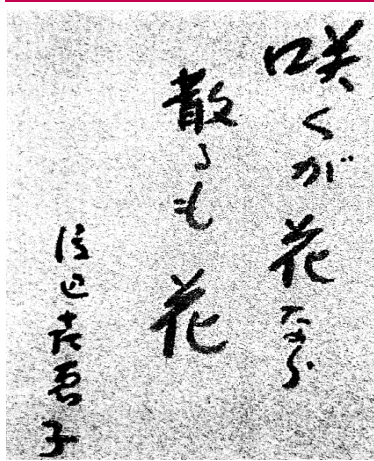 咲くが花なら
散るも花
渡辺喜恵子